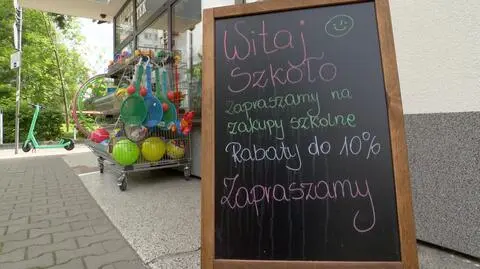 Witaj
Szkoło
zapraszamy na
zakupy szkolne
Rabaty do 10%
Zapraszamy